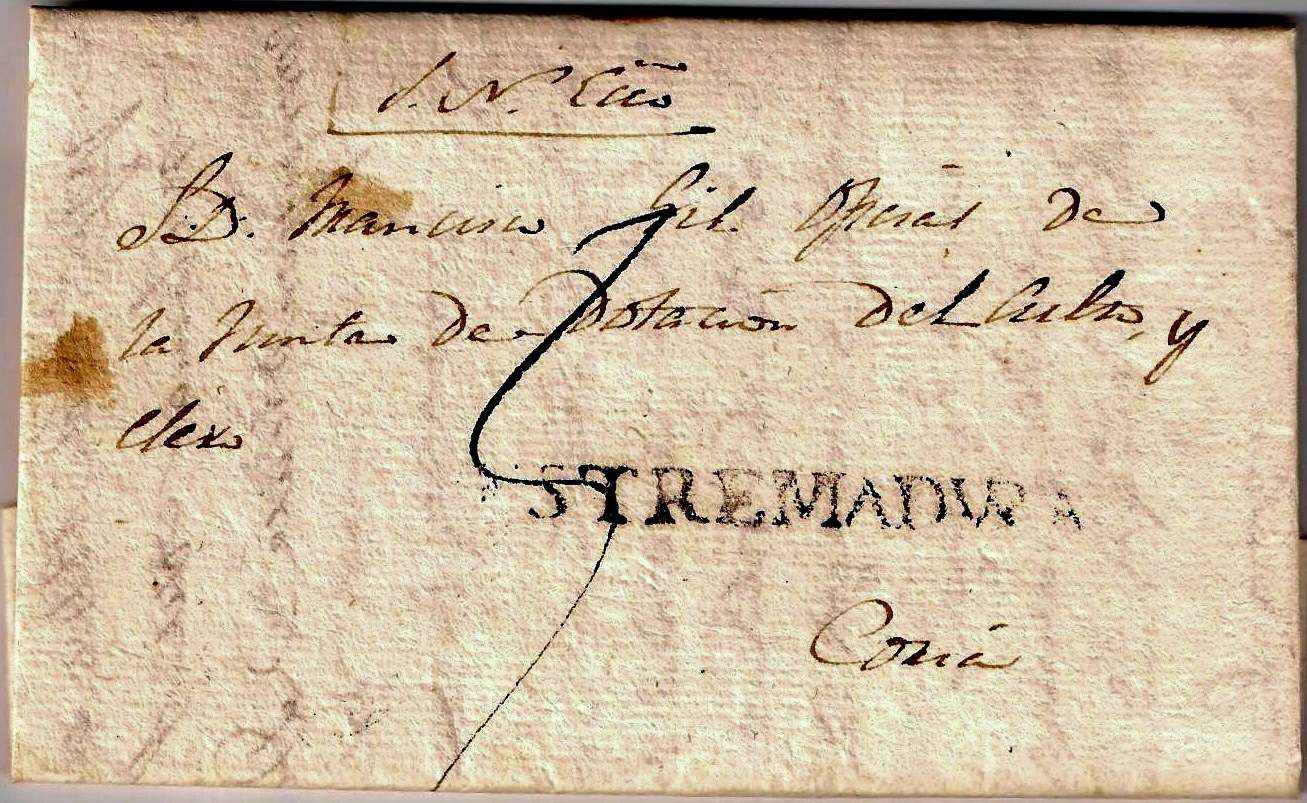 S. N. Ecco
S.D. Marciso Gil Oficial de
la Junta de Dotacion del Culto, y
clero
STREMADURA
Coria